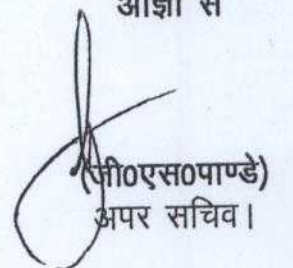 आज्ञा से
(जी0एस0पाण्डे)
अपर सचिव।